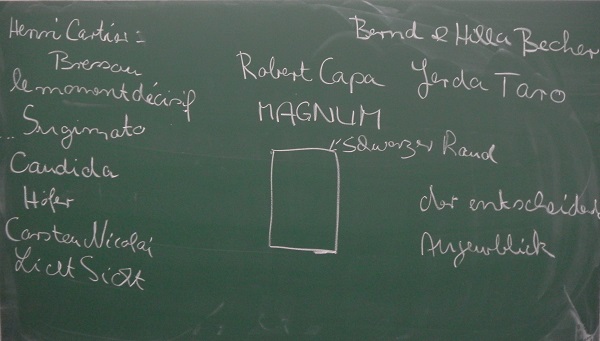 Henri Cartier=
Bresson
le moment décisif
.. Sugimoto
Candida
Höfer
Carsten Nicolai
Licht Sicht
Bernd & Hilla Becher
Robert Capa Gerda Taro
MAGNUM
"Schwarzer Rand
der entscheidend
Augenblick